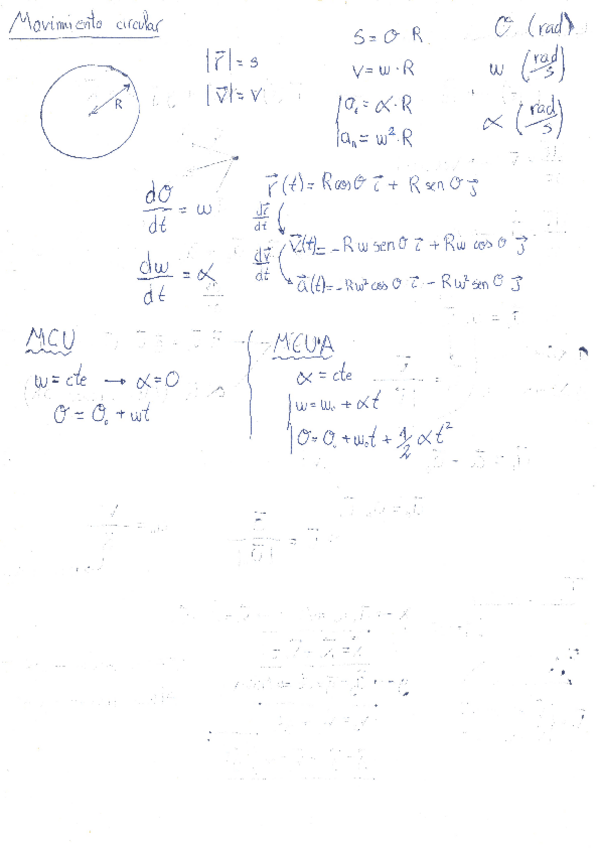 Movimiento circular
R
|r⃗| = s
|v⃗| = v
s = θ R
v = w · R
aₜ = α · R
aₙ = w² · R
θ (rad)
w (rad/s)
α (rad/s)
dθ/dt = w
dw/dt = α
r⃗(t) = R cos θ i⃗ + R sen θ j⃗
dr⃗/dt
v⃗(t) = -Rw sen θ i⃗ + Rw cos θ j⃗
dv⃗/dt
a⃗(t) = -Rw² cos θ i⃗ - Rw² sen θ j⃗
MCU
w = cte → α = 0
θ = θ₀ + wt
MCUA
α = cte
w = w₀ + αt
θ = θ₀ + w₀t + 1/2 αt²